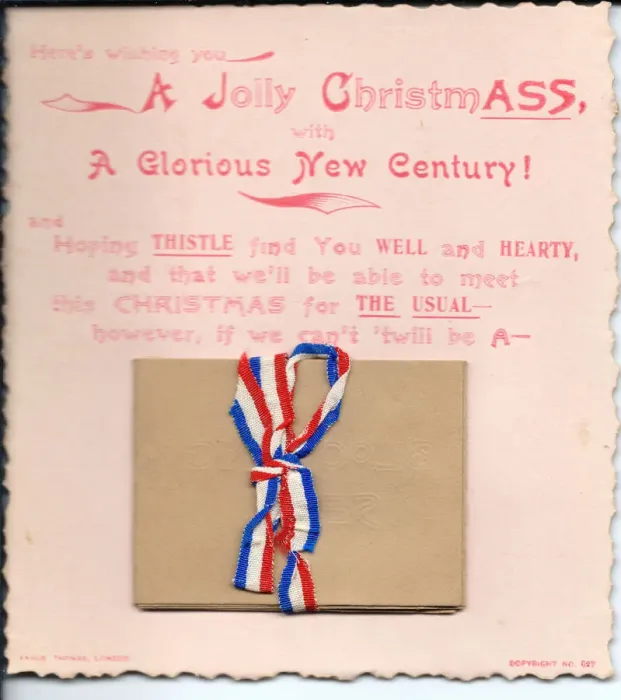 Here's wishing you
A Jolly ChristmASS,
with
A Glorious New Century!
and
Hoping THISTLE find You WELL and HEARTY,
and that we'll be able to meet
this CHRISTMAS for THE USUAL—
however, if we can't 'twill be A—
LONDON
COPYRIGHT NO. 627